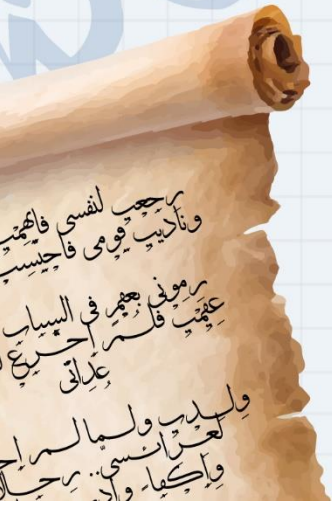 رجعت لنفسى فاتهمت
وناديت قومى فاحتسبت
رمونى بعقم فى الشباب
عقمت فلم اجزع
عداتى
ولدت ولما لم
لعرائسى.. رجالا
واكفاء